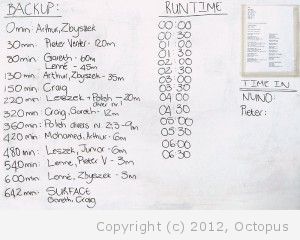 BACKUP:
0min: Arthur, Zbyszek
30min: Pieter Venter - 120m
80min: Gareth - 60m
Lenné - 45m
130min: Arthur, Zbyszek - 35m
150min: Craig
220min: Leszek - Polish - 20m
diver nr 1
320min: Craig, Gareth - 12m
360min: Polish divers nr 2;3 - 9m
420min: Mohamed, Arthur - 6m
480min: Leszek, Junior - 6m
540min: Lenné, Pieter V - 3m
600min: Lenné, Zbyszek - 3m
642min: SURFACE
Gareth, Craig
RUNTIME
00:00
00:30
01:00
01:30
02:00
02:30
03:00
03:30
04:00
04:30
05:00
05:30
06:00
06:30
TIME IN
NUNO:
Pieter:
Copyright (c) 2012, Octopus